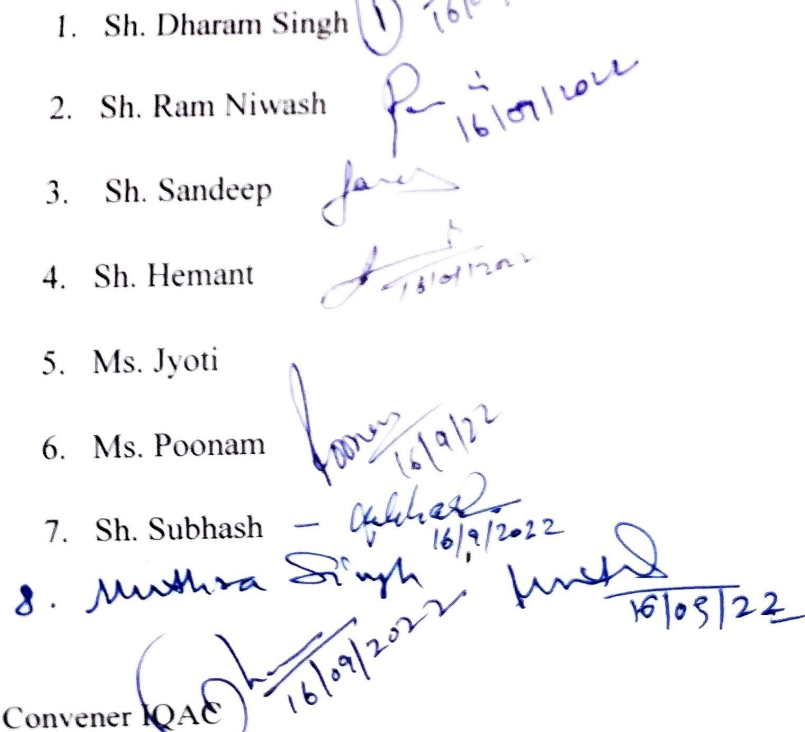 1. Sh. Dharam Singh
2. Sh. Ram Niwash 16/09/2022
3. Sh. Sandeep
4. Sh. Hemant 16/09/2022
5. Ms. Jyoti
6. Ms. Poonam Poonam 16/9/22
7. Sh. Subhash – 16/9/2022
8. Muthra Singh 16/09/22
16/09/2022
Convener IQAC